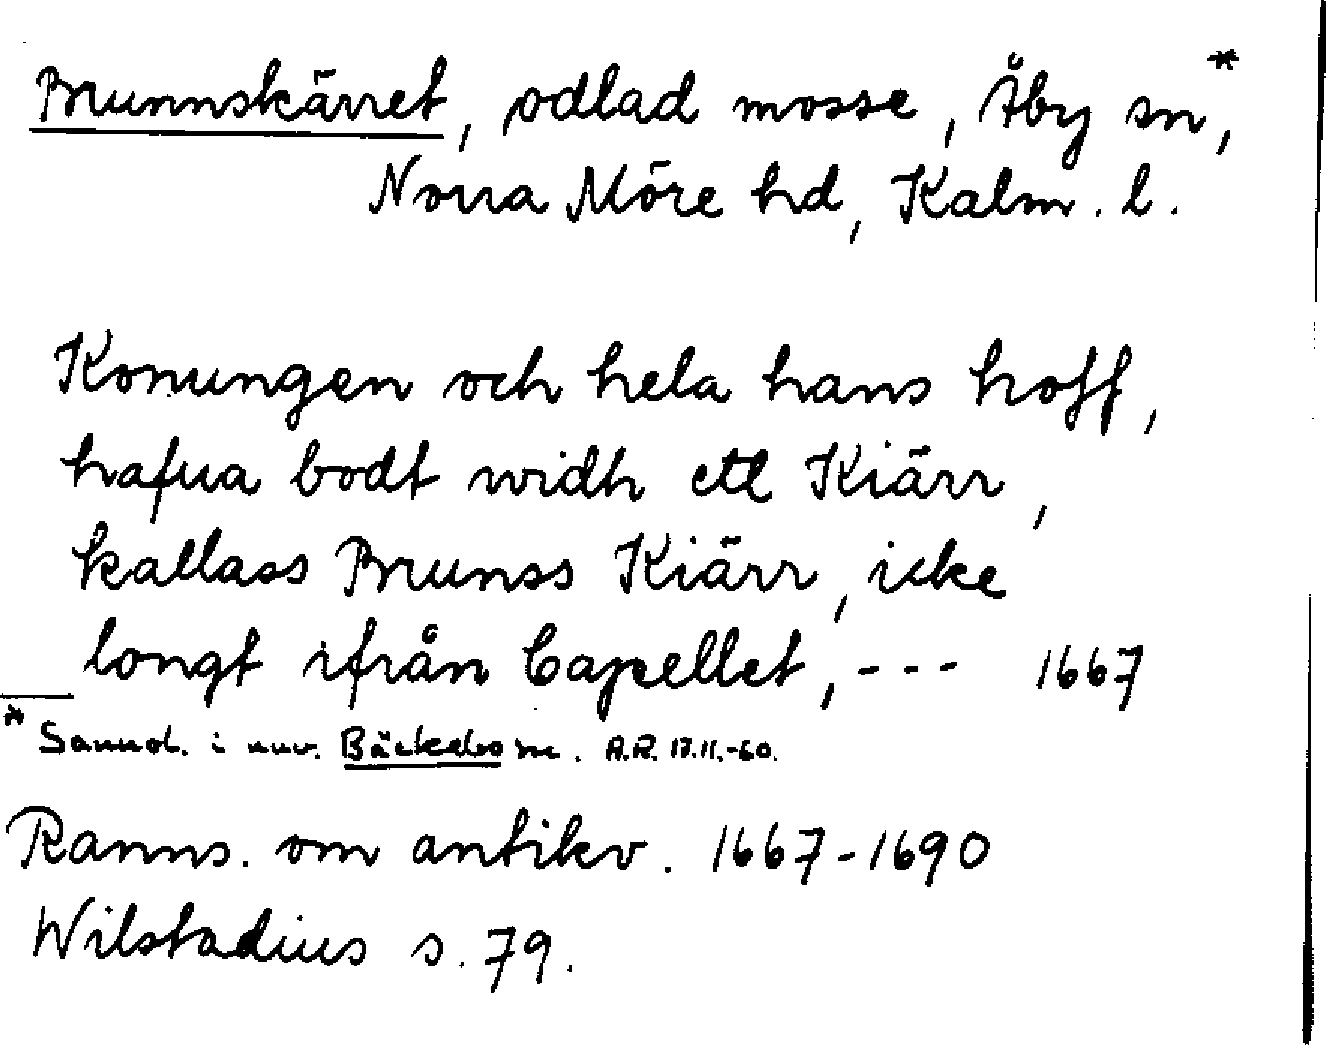 Brunnskärret, odlad mosse, Åby sn,*
Norra Möre hd, Kalm. l.
Konungen och hela hans hoff,
hafua bodt widh ett Kiärr,
kallass Brunss Kiärr, icke
longt ifrån Capellet, --- 1667
* Sannol. i nuv. Bäckebo sn. A.R. 17.11.-60.
Ranns. om antikv. 1667-1690
Wilstadius s. 79.